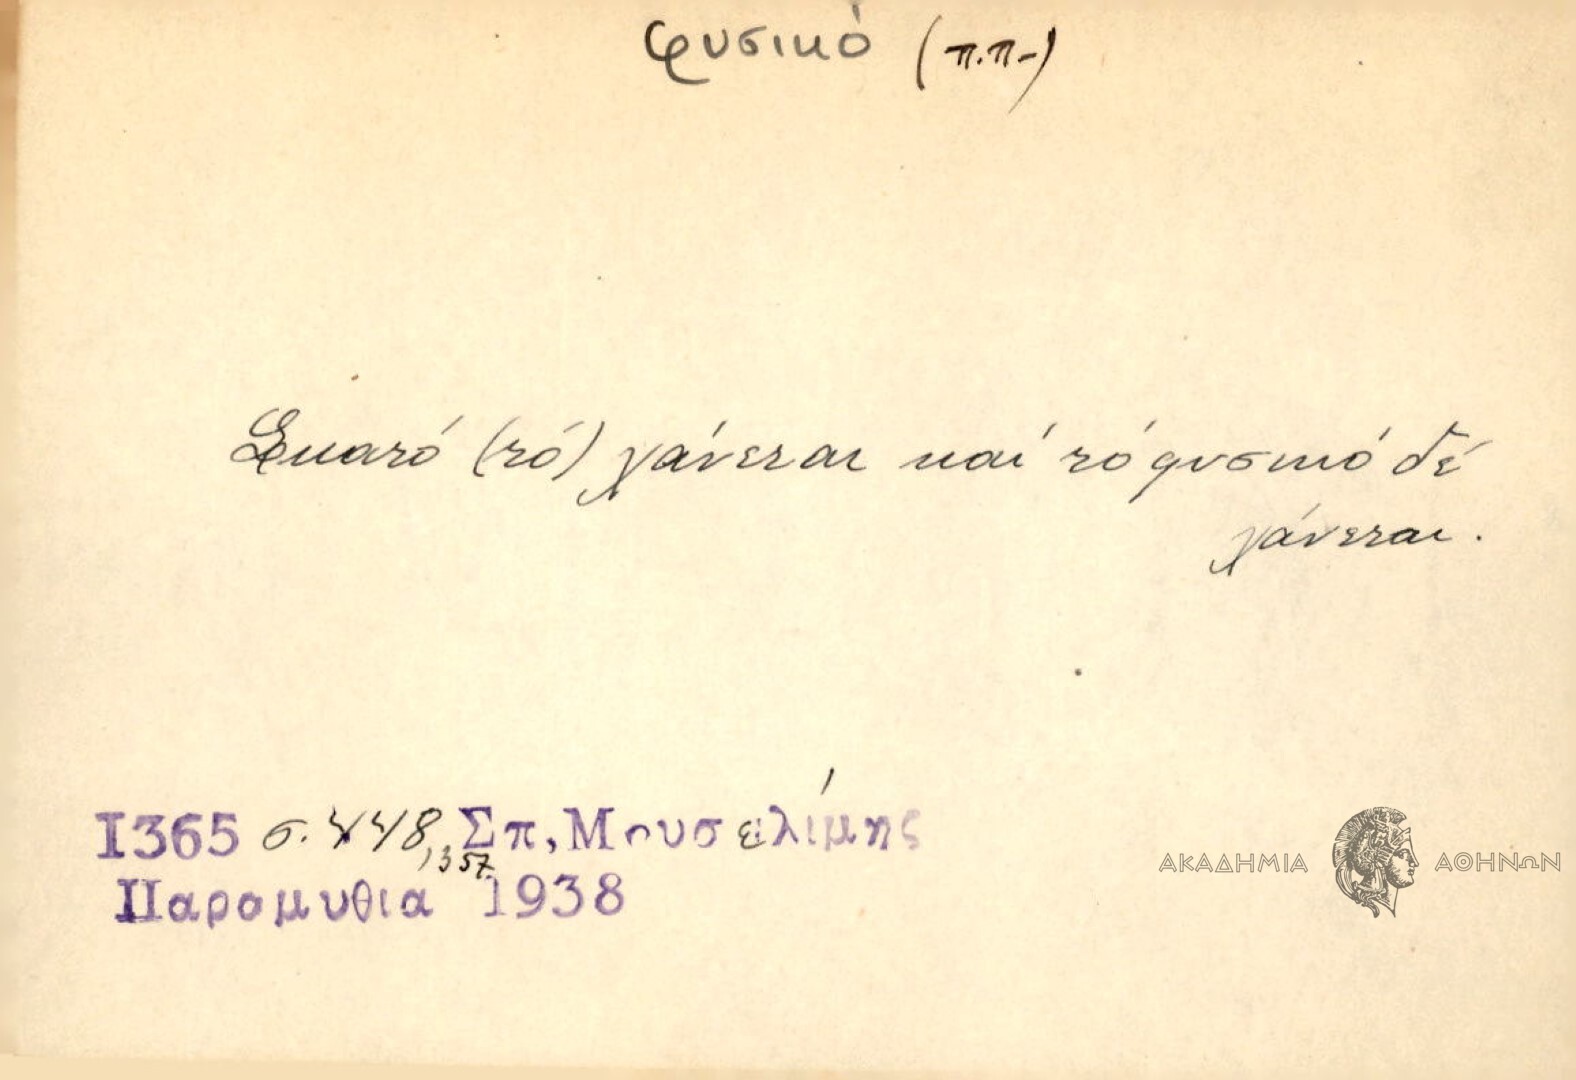 φυσικό (π.π-)
Σκατό (τό) χάνεται καί τό φυσικό δέ
χάνεται.
Ι365 σ. 448,357. Σπ, Μουσελίμης
Παραμυθια 1938
ΑΚΑΔΗΜΙΑ ΑΘΗΝΩΝ